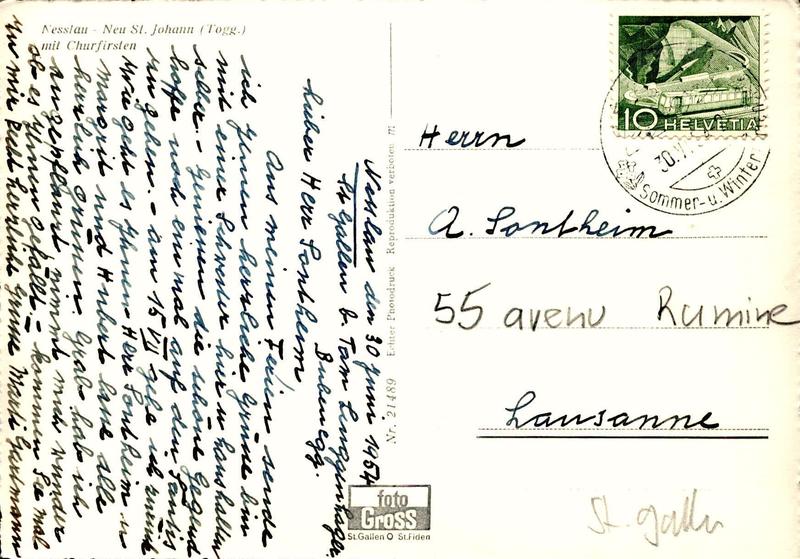 Nesslau - Neu St. Johann (Togg.)
mit Churfirsten
Nesslau den 30 Juni 1954
St Gallen b. Tam
Lieber Herr Sontheim
Aus meinen Ferien sende
ich Ihnen herzliche Grüsse bin
mit eine Schwester hir u haushalten
selber. - Geniessen die schöne Gegend
hoffe noch ein mal auf den Säntis
zu gehen. - am 15 VII gehe ich
Wie geht es Ihnen Herr Sontheim u
Margrit und Hubert lasse alle
herzlich Grab hab ich
angepflanzt nimmt mich wunder
ob es Ihnen Gefällt - kommen Sie mal
zu mir Bitte herzliche Grüsse Marti
Nr. 21489 Echter Photodruck Reproduktion verboten
foto
Gross
St.Gallen St.Fiden
10 HELVETIA
30.VI
Sommer- u. Winter
Herrn
A. Sontheim
55 avenu Rumine
Lausanne
St. gallen